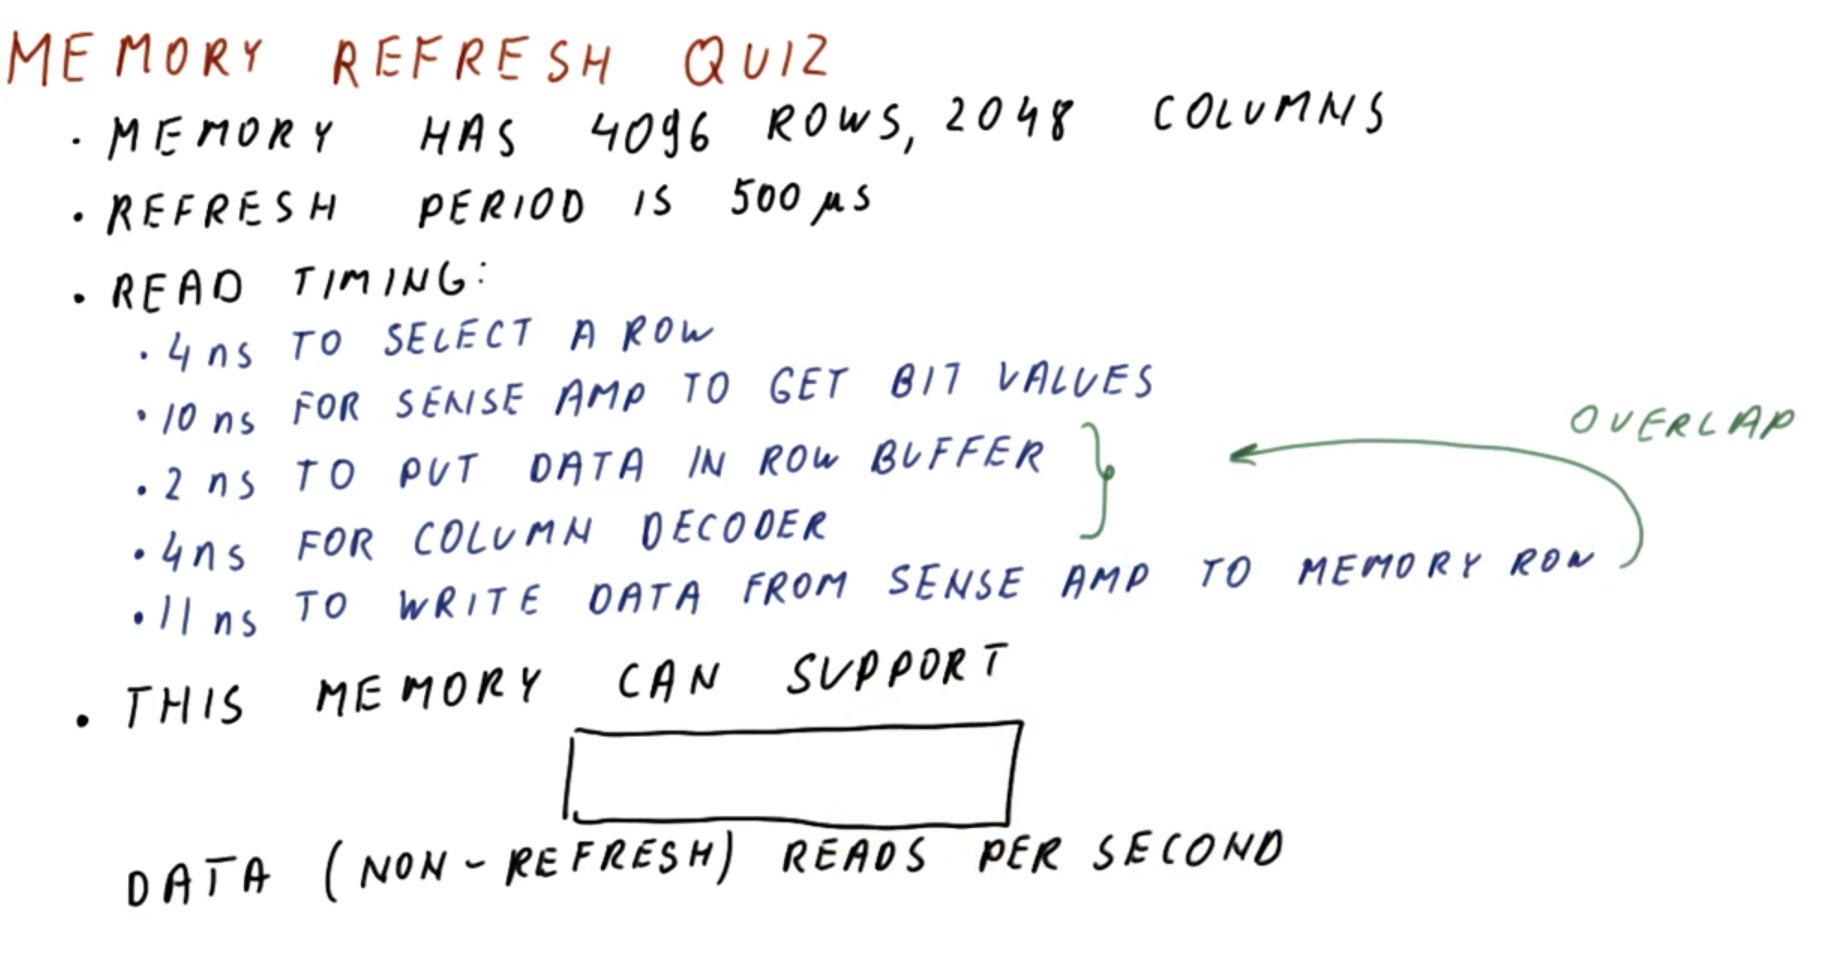 MEMORY REFRESH QUIZ
· MEMORY HAS 4096 ROWS, 2048 COLUMNS
· REFRESH PERIOD IS 500 μs
· READ TIMING:
· 4 ns TO SELECT A ROW
· 10 ns FOR SENSE AMP TO GET BIT VALUES
OVERLAP
· 2 ns TO PUT DATA IN ROW BUFFER
· 4 ns FOR COLUMN DECODER
· 11 ns TO WRITE DATA FROM SENSE AMP TO MEMORY ROW
· THIS MEMORY CAN SUPPORT
DATA (NON-REFRESH) READS PER SECOND